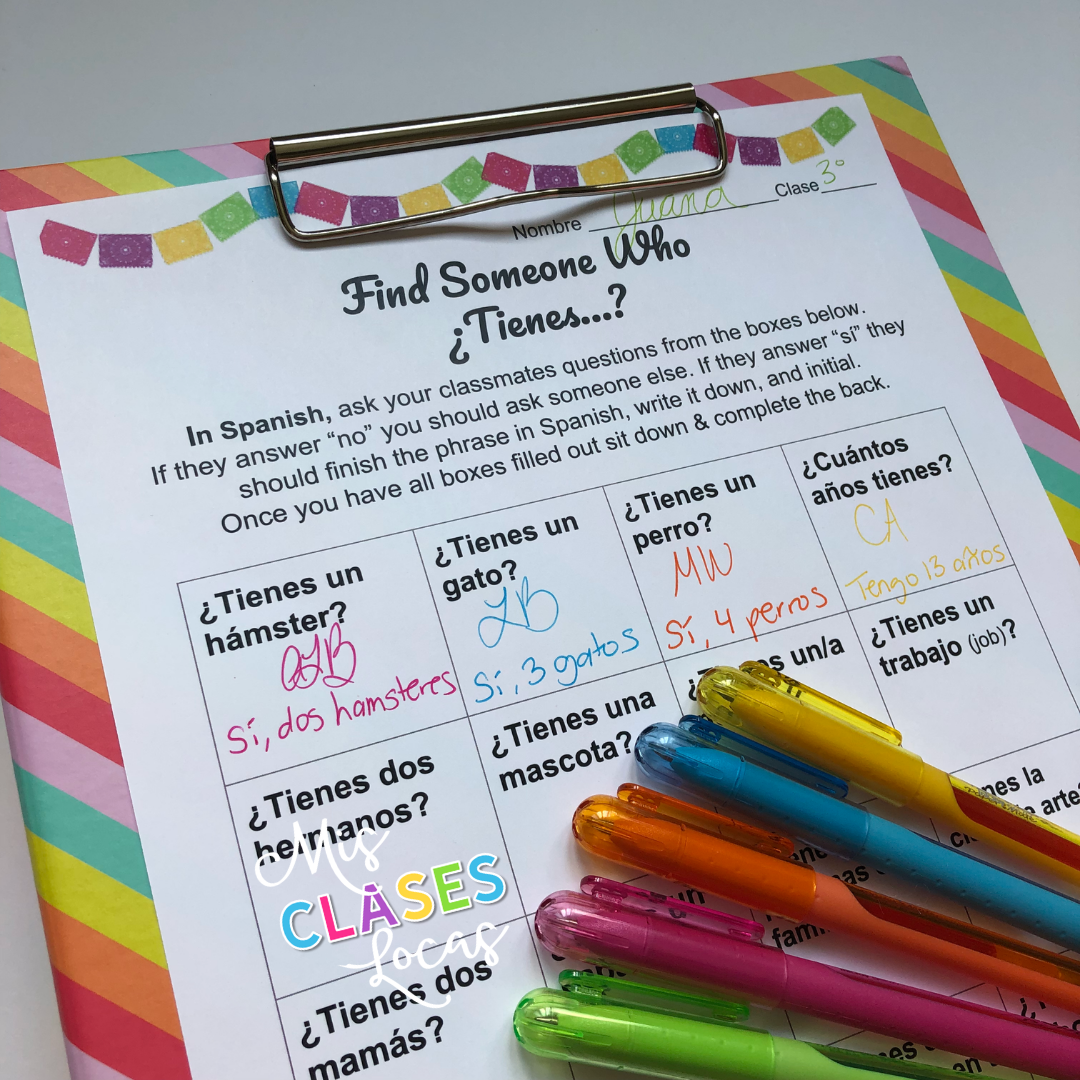 Nombre Yuana Clase 3°
Find Someone Who
¿Tienes...?
In Spanish, ask your classmates questions from the boxes below.
If they answer "no" you should ask someone else. If they answer "sí" they
should finish the phrase in Spanish, write it down, and initial.
Once you have all boxes filled out sit down & complete the back.
¿Tienes un
hámster?
JLB
sí, dos hamsteres
¿Tienes un
gato?
LB
sí, 3 gatos
¿Tienes un
perro?
MW
sí, 4 perros
¿Cuántos
años tienes?
CA
Tengo 13 años
¿Tienes dos
hermanos?
¿Tienes una
mascota?
un/a
¿Tienes un
trabajo (job)?
la
¿Tienes dos
mamás?
Mis
CLASES
Locas